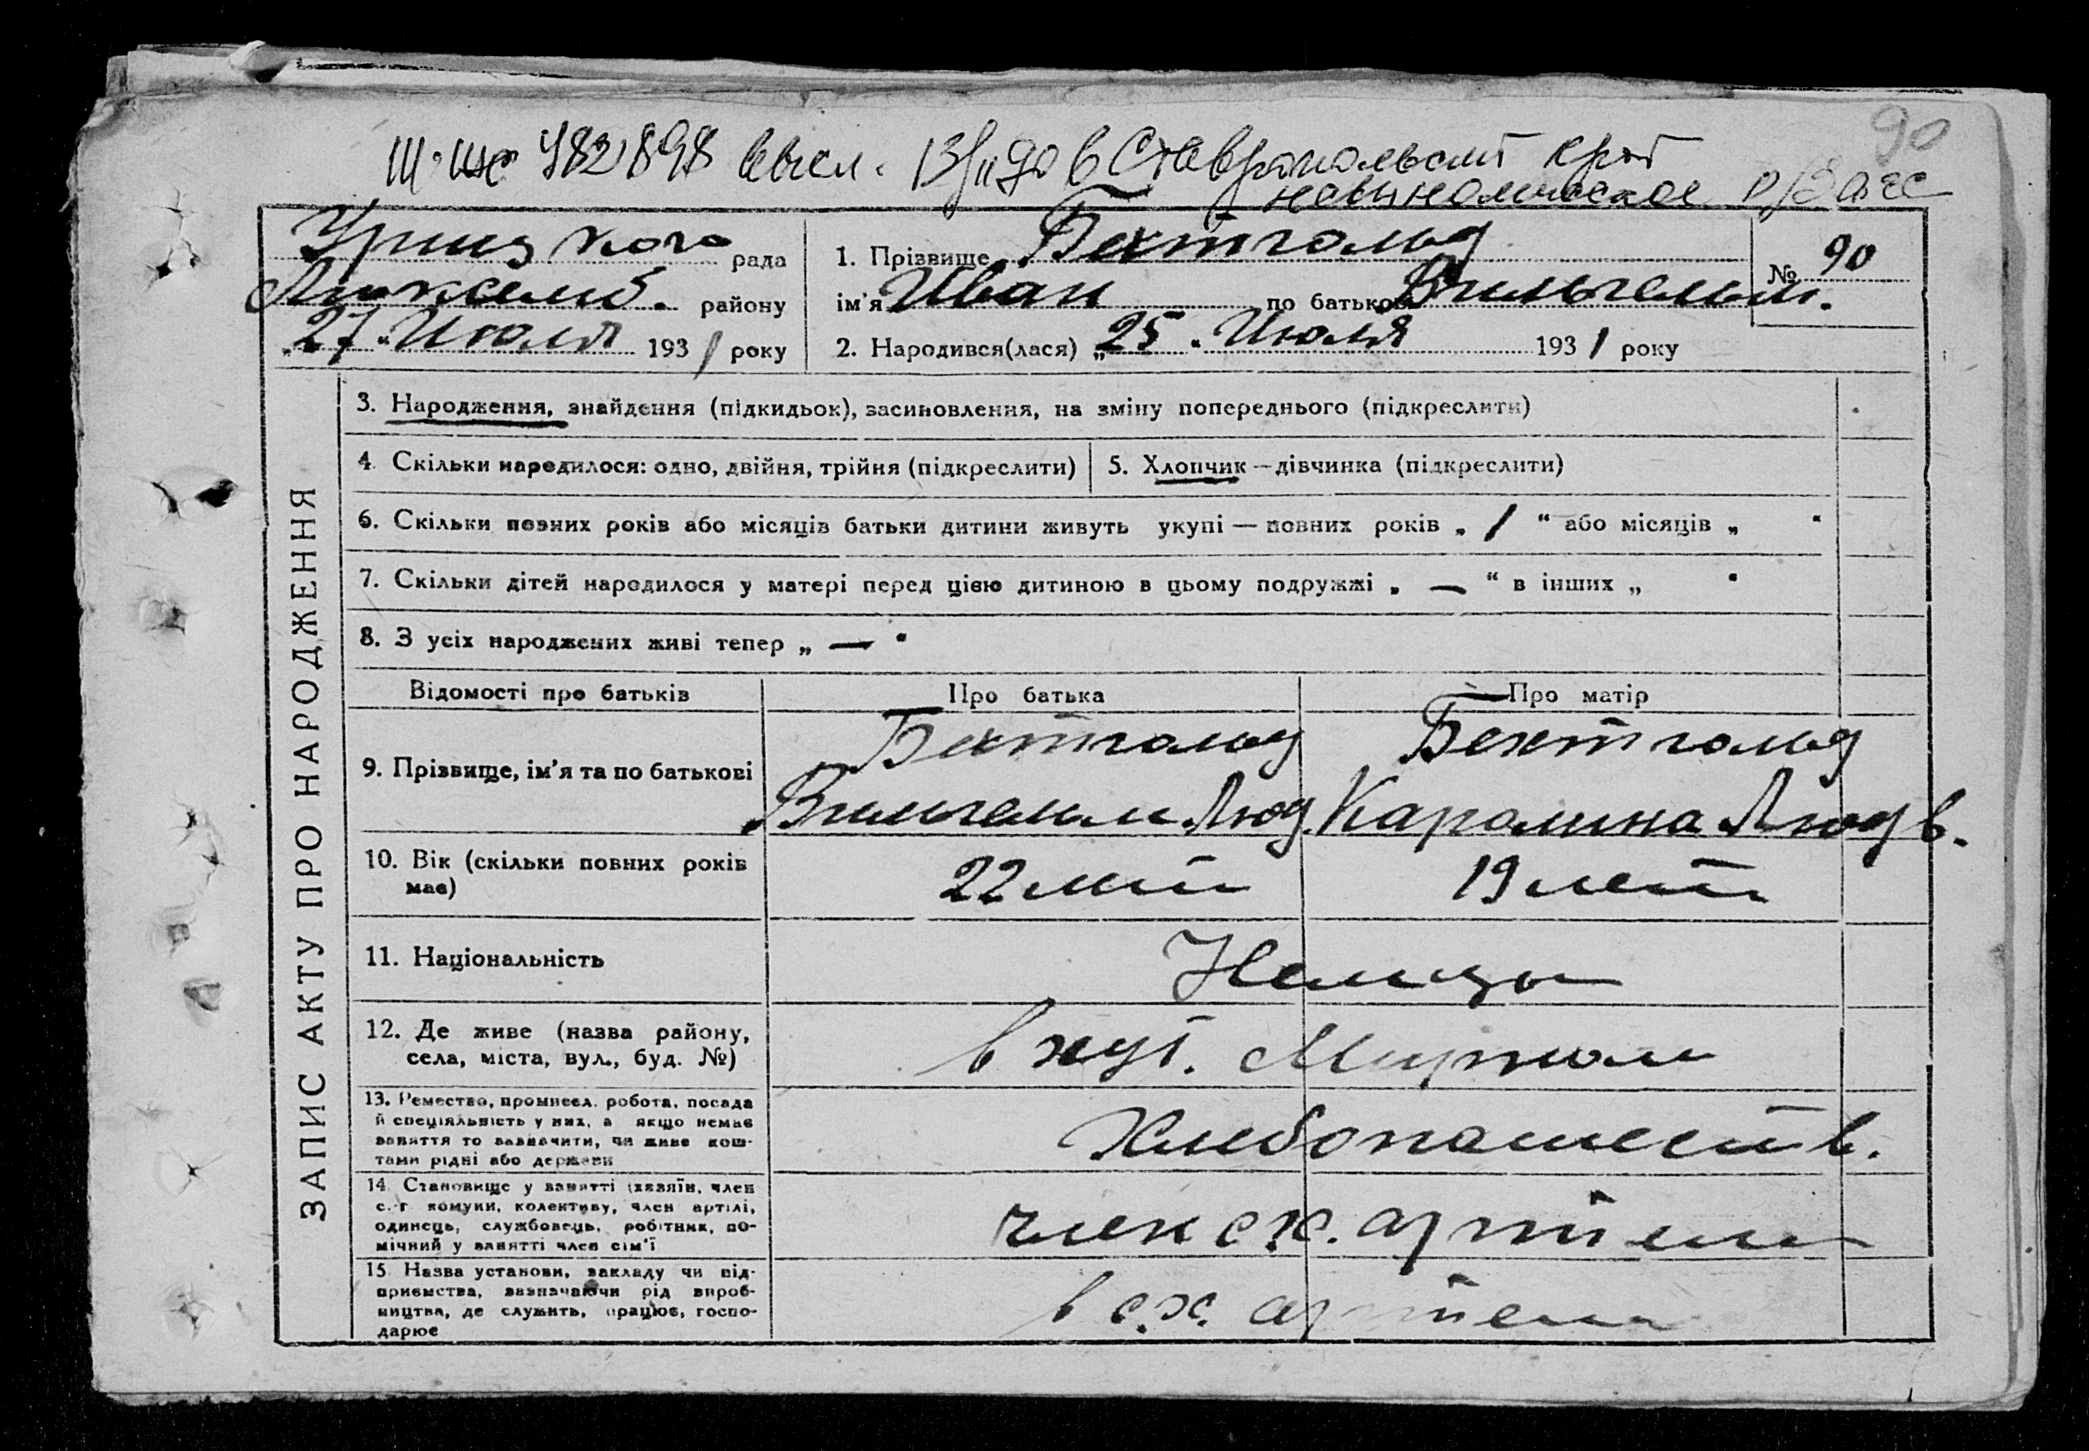 90
482898 высл. в Ставропольский край
Невинномысское р/ЗАГС
Урицкого рада
Люксемб. району
„27" Июля 1931 року
1. Прізвище Бехтгольд
ім'я Иван по батькові Вильгельм.
№ 90
2. Народився(лася) „25" Июля 1931 року
ЗАПИС АКТУ ПРО НАРОДЖЕННЯ
3. Народження, знайдення (підкидьок), засиновлення, на зміну попереднього (підкреслити)
4. Скільки народилося: одно, двійня, трійня (підкреслити)
5. Хлопчик — дівчинка (підкреслити)
6. Скільки повних років або місяців батьки дитини живуть укупі — повних років „ / “ або місяців „ “
7. Скільки дітей народилося у матері перед цією дитиною в цьому подружжі „ — “ в інших „ “
8. З усіх народжених живі тепер „ — “
Відомості про батьків Про батька Про матір
9. Прізвище, ім'я та по батькові
Бехтгольд
Вильгельм Люд.
Бехтгольд
Каролина Людв.
10. Вік (скільки повних років
має)
22 лет 19 лет
11. Національність Немцы
12. Де живе (назва району,
села, міста, вул., буд. №)
в хут.
13. Ремество, промисел, робота, посада
й спеціяльність у них, а якщо немає
заняття то зазначити, чи живе кош-
тами рідні або держави
Хлебопашеств.
14. Становище у занятті (хазяїн, член
с.-г комуни, колективу, член артілі,
одинець, службовець, робітник, по-
мічний у занятті член сім'ї
член с.х. артели
15. Назва установи, закладу чи під-
приємства, зазначаючи рід вироб-
ництва, де служить, працює, госпо-
дарює
в с.х. артели